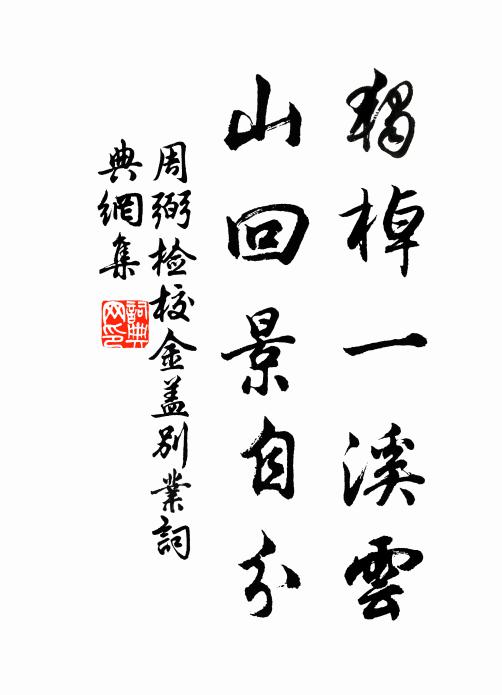 獨棹一溪雲
山回景自分
周弼检校金盖别業詞
典網集
詞典
网印